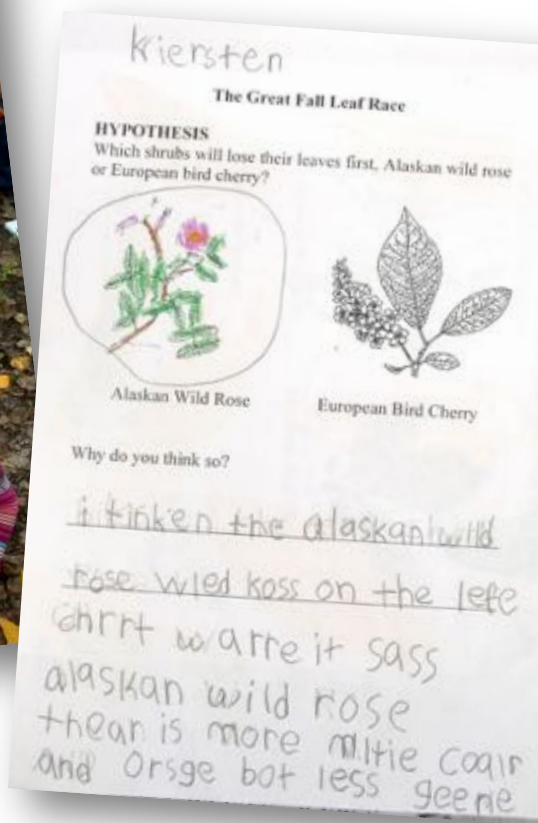 Kiersten
The Great Fall Leaf Race
HYPOTHESIS
Which shrubs will lose their leaves first, Alaskan wild rose
or European bird cherry?
Alaskan Wild Rose
European Bird Cherry
Why do you think so?
i tinken the alaskan wild
rose wled koss on the lefe
chrrt warre it sass
alaskan wild rose
thear is more mltie coalr
and orsge bot less geene